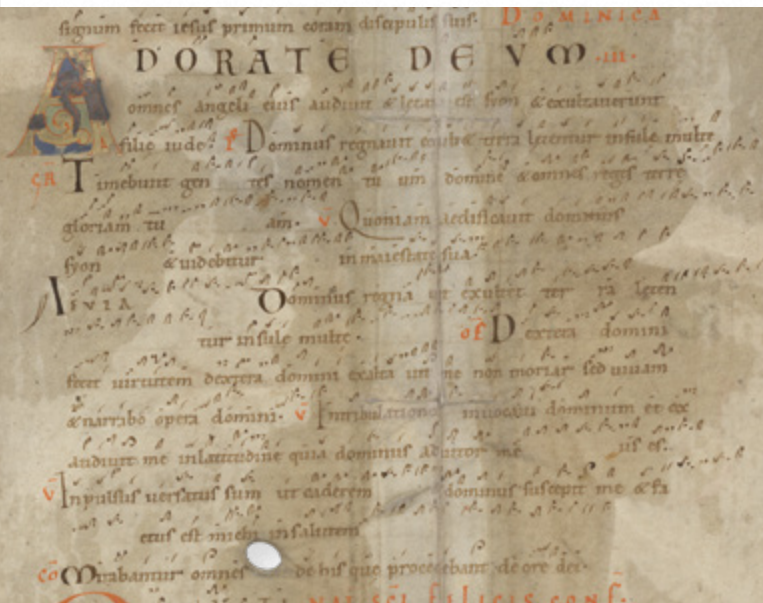 signum fecit iesus primum coram discipulis suis. DOMINICA
ADORATE DEVM .III.
omnes angeli eius audiuit & letata est syon & exultauerunt
filie iude. P Dominus regnauit exult& terra letentur insule multe
GR Timebunt gentes nomen tuum domine & omnes reges terre
gloriam tuam. V Quoniam aedificauit dominus
syon & uidebitur in maiestate sua.
AEVIA Dominus regnauit exultet terra leten
tur insule multe. OF Dextera domini
fecit uirtutem dextera domini exaltauit me non moriar sed uiuam
& narrabo opera domini. V In tribulatione inuocaui dominum et ex
audiuit me in latitudine quia dominus adiutor meus est.
V Inpulsus uersatus sum ut caderem dominus suscepit me & fa
ctus est michi in salutem
CO Mirabantur omnes de his que procedebant de ore dei.
NAT SCI FELICIS CONF.